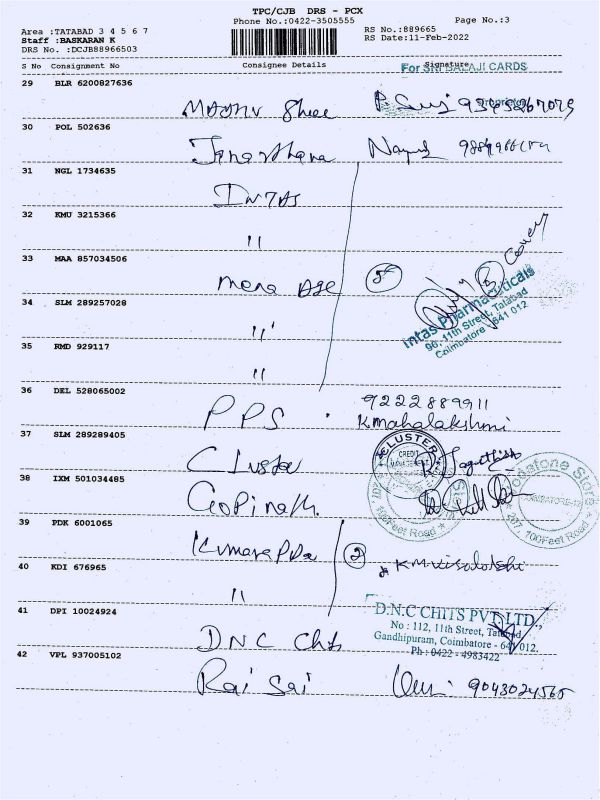 TPC/CJB DRS - PCX
Phone No.:0422-3505555
Page No.:3
Area :TATABAD 3 4 5 6 7
Staff :BASKARAN K
DRS No. :DCJB88966503
RS No.:889665
RS Date:11-Feb-2022
S No Consignment No Consignee Details Signature
For SRI BALAJI CARDS
29 BLR 6200827636
Proprietor
30 POL 502636
31 NGL 1734635
INTAS
32 KMU 3215366
"
33 MAA 857034506
5
Only Cover
Intas Pharmaceuticals
96, 11th Street, Tatabad
Coimbatore - 641 012
34 SLM 289257028
"
35 RMD 929117
"
36 DEL 528065002
9222889911
PPS K mahalakshmi
37 SLM 289289405
Cluster
CLUSTER
CREDIT
38 IXM 501034485
Gopinath.
100Feet Road
Vodafone Store
COIMBATORE-12
100Feet Road
39 PDK 6001065
Kumarappa 2
40 KDI 676965
"
41 DPI 10024924
D.N.C CHITS PVT. LTD.,
No : 112, 11th Street, Tatabad
Gandhipuram, Coimbatore - 641 012.
Ph : 0422 - 4983422
DNC Chits
42 VPL 937005102
Rai Sai 9043024565